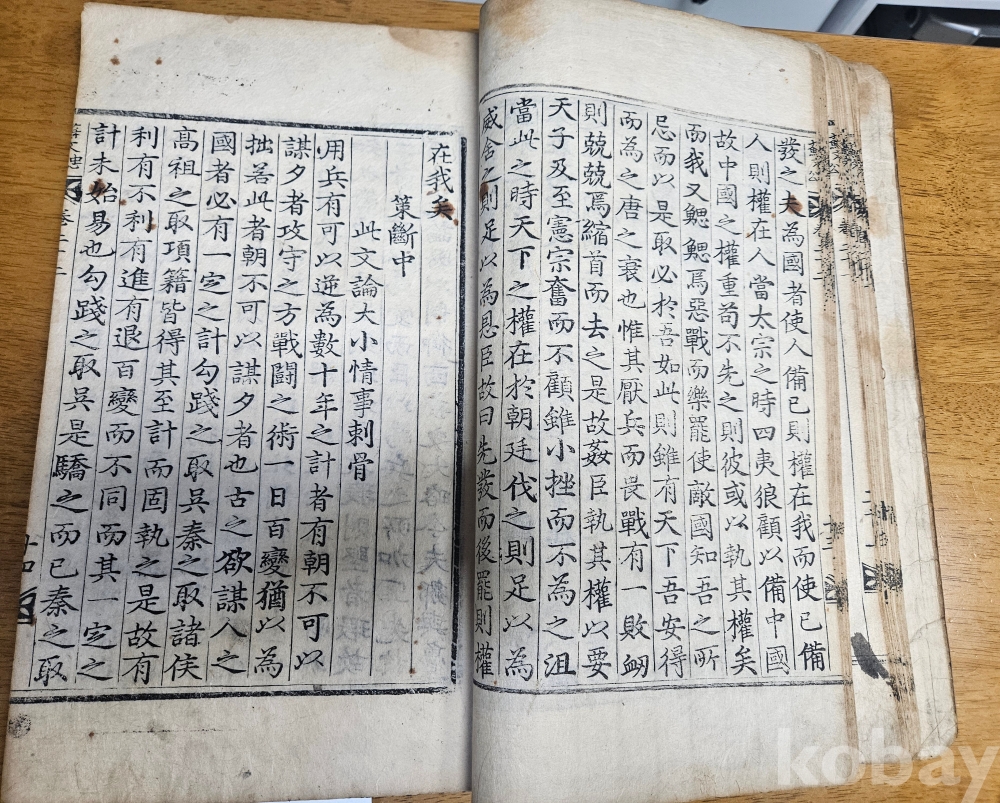 發之夫為國者使人備已則權在我而使已備
人則權在人當太宗之時四夷狼顧以備中國
故中國之權重苟不先之則彼或以執其權矣
而我又鰓鰓焉惡戰而樂罷使敵國知吾之所
忌而以是取必於吾如此則雖有天下吾安得
而為之唐之衰也惟其厭兵而畏戰有一敗衂
則兢兢焉縮首而去之是故姦臣執其權以要
天子及至憲宗奮而不顧雖小挫而不為之沮
當此之時天下之權在於朝廷伐之則足以為
威舍之則足以為恩臣故曰先發而後罷則權
在我矣
策斷中
此文論大小情事刺骨
用兵有可以逆為數十年之計者有朝不可以
謀夕者攻守之方戰鬪之術一日百變猶以為
拙若此者朝不可以謀夕者也古之欲謀人之
國者必有一定之計勾踐之取吳秦之取諸侯
高祖之取項籍皆得其至計而固執之是故有
利有不利有進有退百變而不同而其一定之
計未始易也勾踐之取吳是驕之而已秦之取
kobay